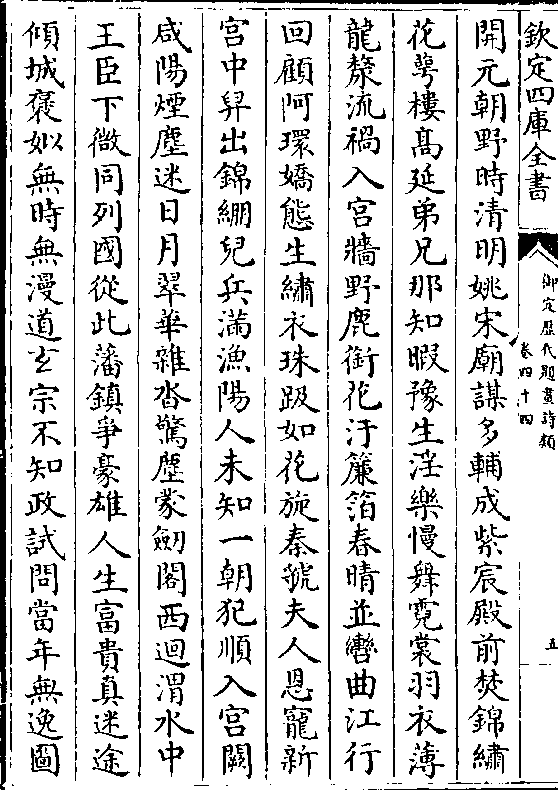 欽定四庫全書
御定歷代題畫詩類
卷四十四
五
開元朝野時清明姚宋廟謀多輔成紫宸殿前焚錦繡
花萼樓高延弟兄那知暇豫生淫樂慢舞霓裳羽衣薄
龍漦流禍入宮牆野鹿銜花汙簾箔春晴並轡曲江行
回顧阿環嬌態生繡衣珠趿如花旋秦虢夫人恩寵新
宮中舁出錦繃兒兵滿漁陽人未知一朝犯順入宮闕
咸陽煙塵迷日月翠華雜沓驚塵蒙劒閣西迴渭水中
王臣下微同列國從此藩鎮爭豪雄人生富貴真迷途
傾城褒姒無時無漫道玄宗不知政試問當年無逸圖